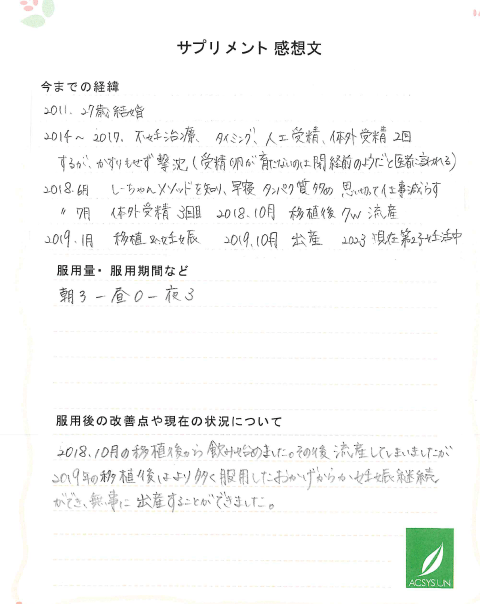 サプリメント 感想文
今までの経緯
2011. 27歳 結婚
2014〜2017. 不妊治療、タイミング、人工受精、体外受精 2回
するが、かすりもせず撃沈 (受精卵が育たないのは閉経前のようだと医者に言われる)
2018.6月 しーちゃんメソッドを知り、早寝 タンパク質多め 思い切って仕事減らす
〃 7月 体外受精 3回目 2018.10月 移植後 7w 流産
2019.1月 移植 妊娠 2019.10月 出産 2023 現在 第2子妊活中
服用量・服用期間など
朝3 - 昼0 - 夜3
服用後の改善点や現在の状況について
2018.10月の移植後から飲み始めました。その後 流産してしまいましたが
2019年の移植後はより多く服用したおかげからか妊娠継続
ができ、無事に出産することができました。
ACSYSUN